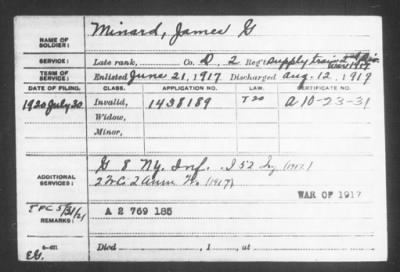 Minard, James G
NAME OF SOLDIER:
SERVICE: Late rank, Co. D, 2 Reg't Supply train
TERM OF SERVICE: Enlisted June 21, 1917 Discharged Aug. 12, 1919
DATE OF FILING. CLASS. APPLICATION NO. LAW. CERTIFICATE NO.
1920 July 30 Invalid, 1438189 T 20 A 10-23-31
Widow,
Minor,
ADDITIONAL SERVICES:
G 8 NY. Inf. I 52 Inf (1917)
(1917)
WAR OF 1917
REMARKS: A 2 769 185
Died , 1 , at